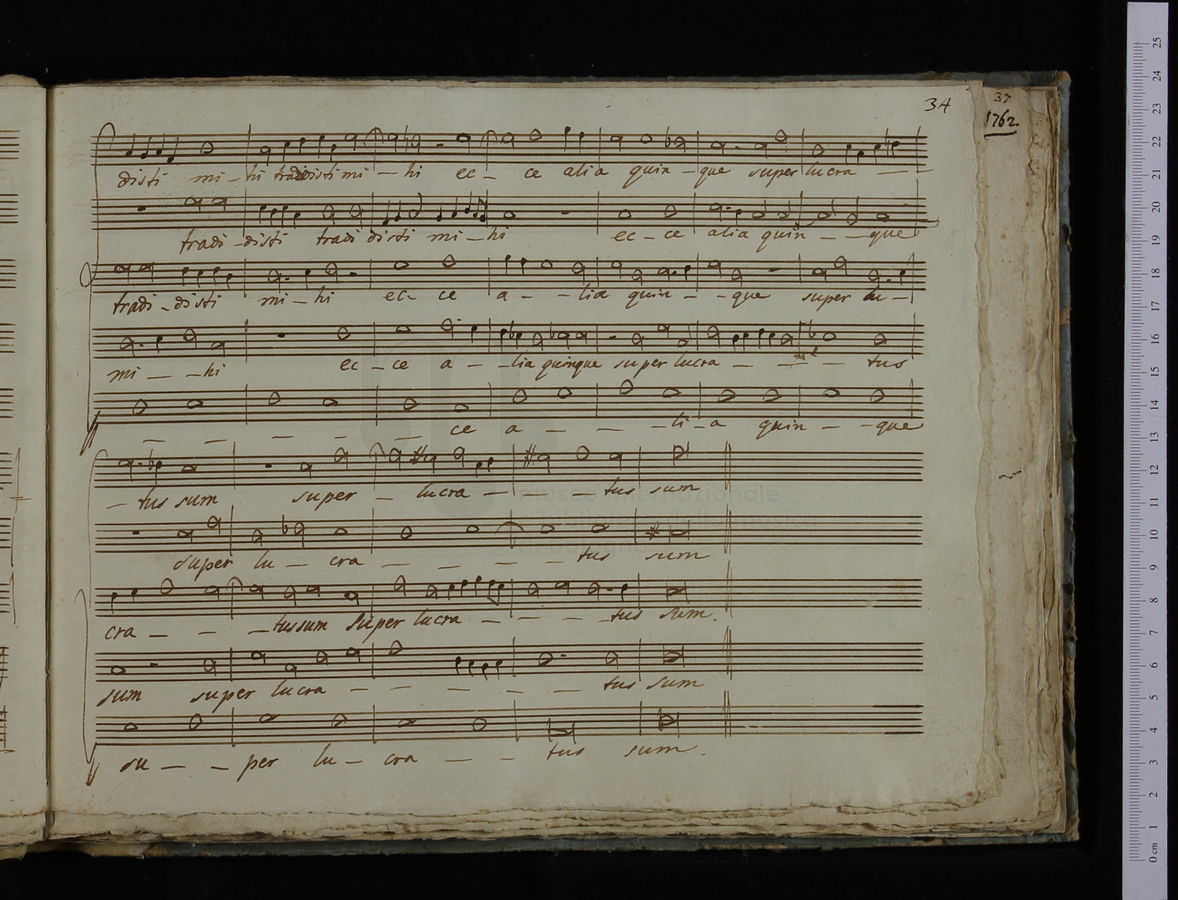 34
37
1762.
disti mi - hi tradidisti mi - hi ec - ce alia quin - que super lucra - -
tradi - disti tradi disti mi - hi ec - ce alia quin - - que
tradi - disti mi - hi ec - ce a - - lia quin - - que super lu -
mi - - hi ec - ce a - - lia quinque super lucra - - - tus
- - - - - ce a - - - li - a quin - - que
- tus sum super - lucra - - - tus sum
super lu - cra - - - - tus sum
cra - - - tus sum super lucra - - - tus sum.
sum super lucra - - - - - - tus sum
su - - per lu - cra - - tus sum.
museo internazionale
0 cm 1 2 3 4 5 6 7 8 9 10 11 12 13 14 15 16 17 18 19 20 21 22 23 24 25